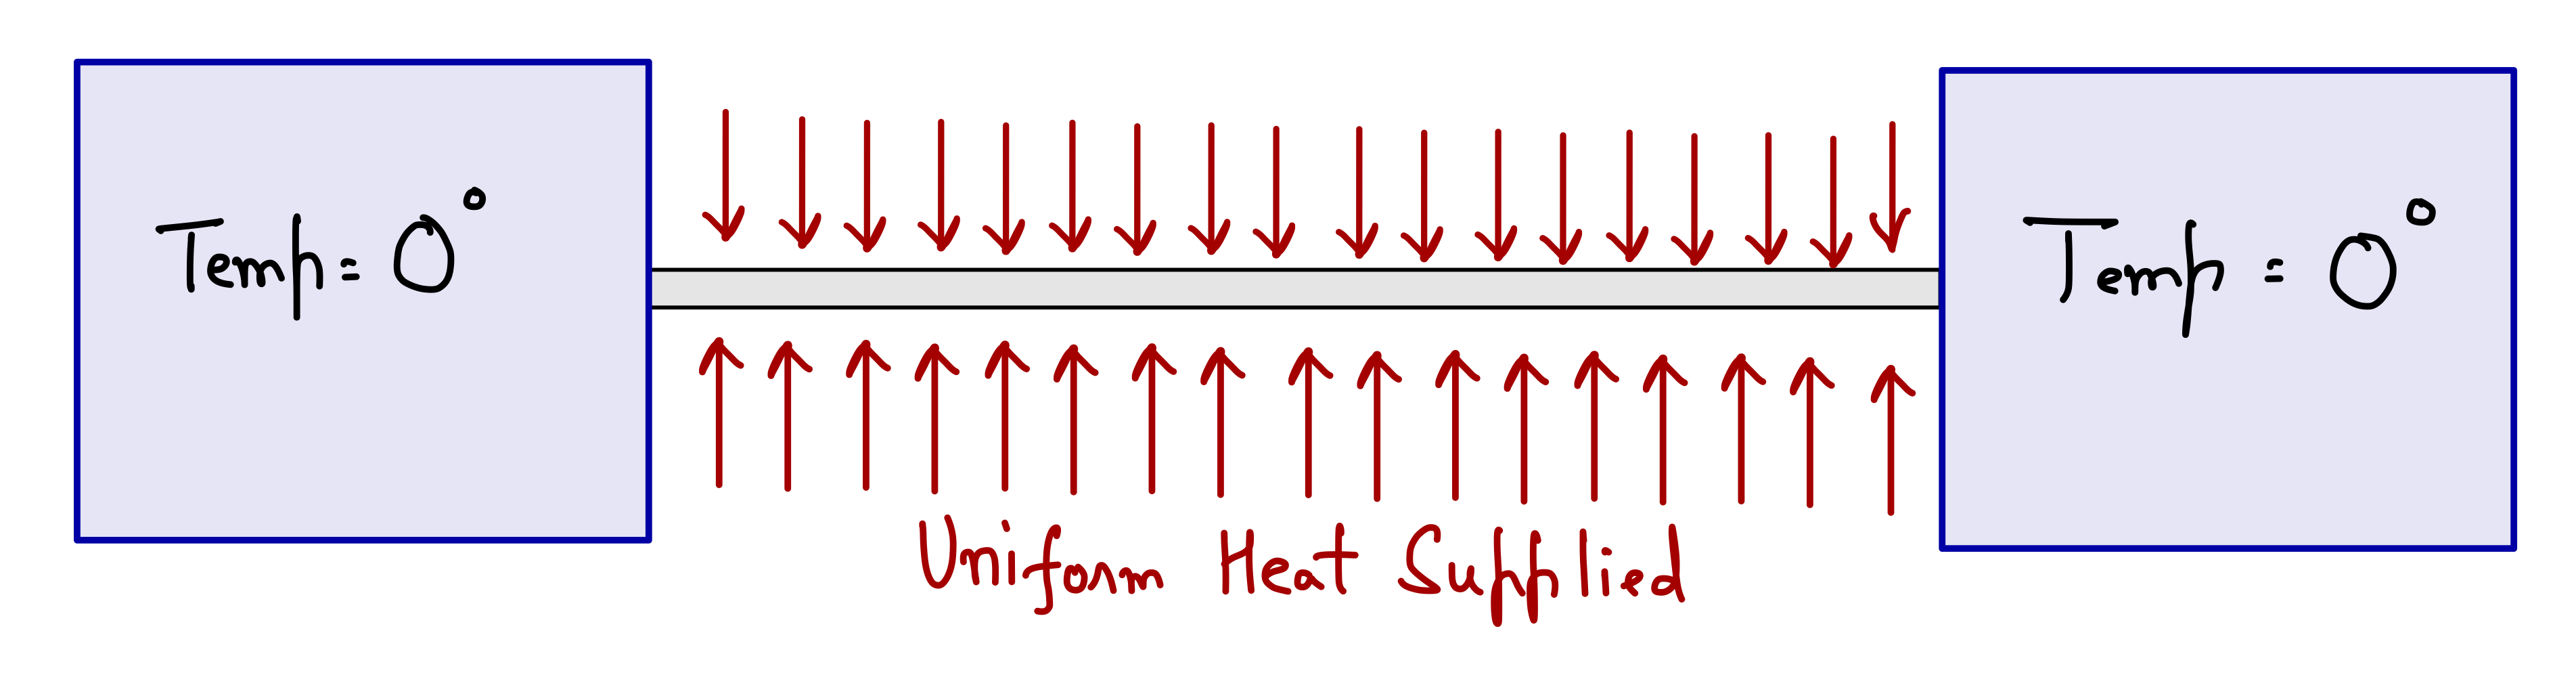 Temp = 0°
Temp = 0°
Uniform Heat Supplied